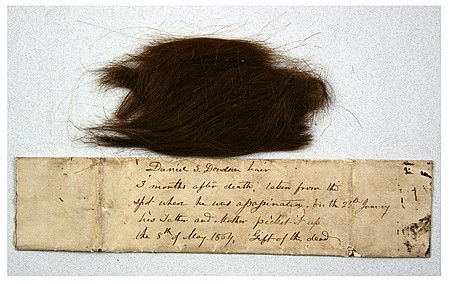 Daniel S. Dondore hair
3 months after death, taken from the
spot where he was assassinated. On the 20th January
his Father and Mother picket it up
the 8th of May 1864. Gift of the dead